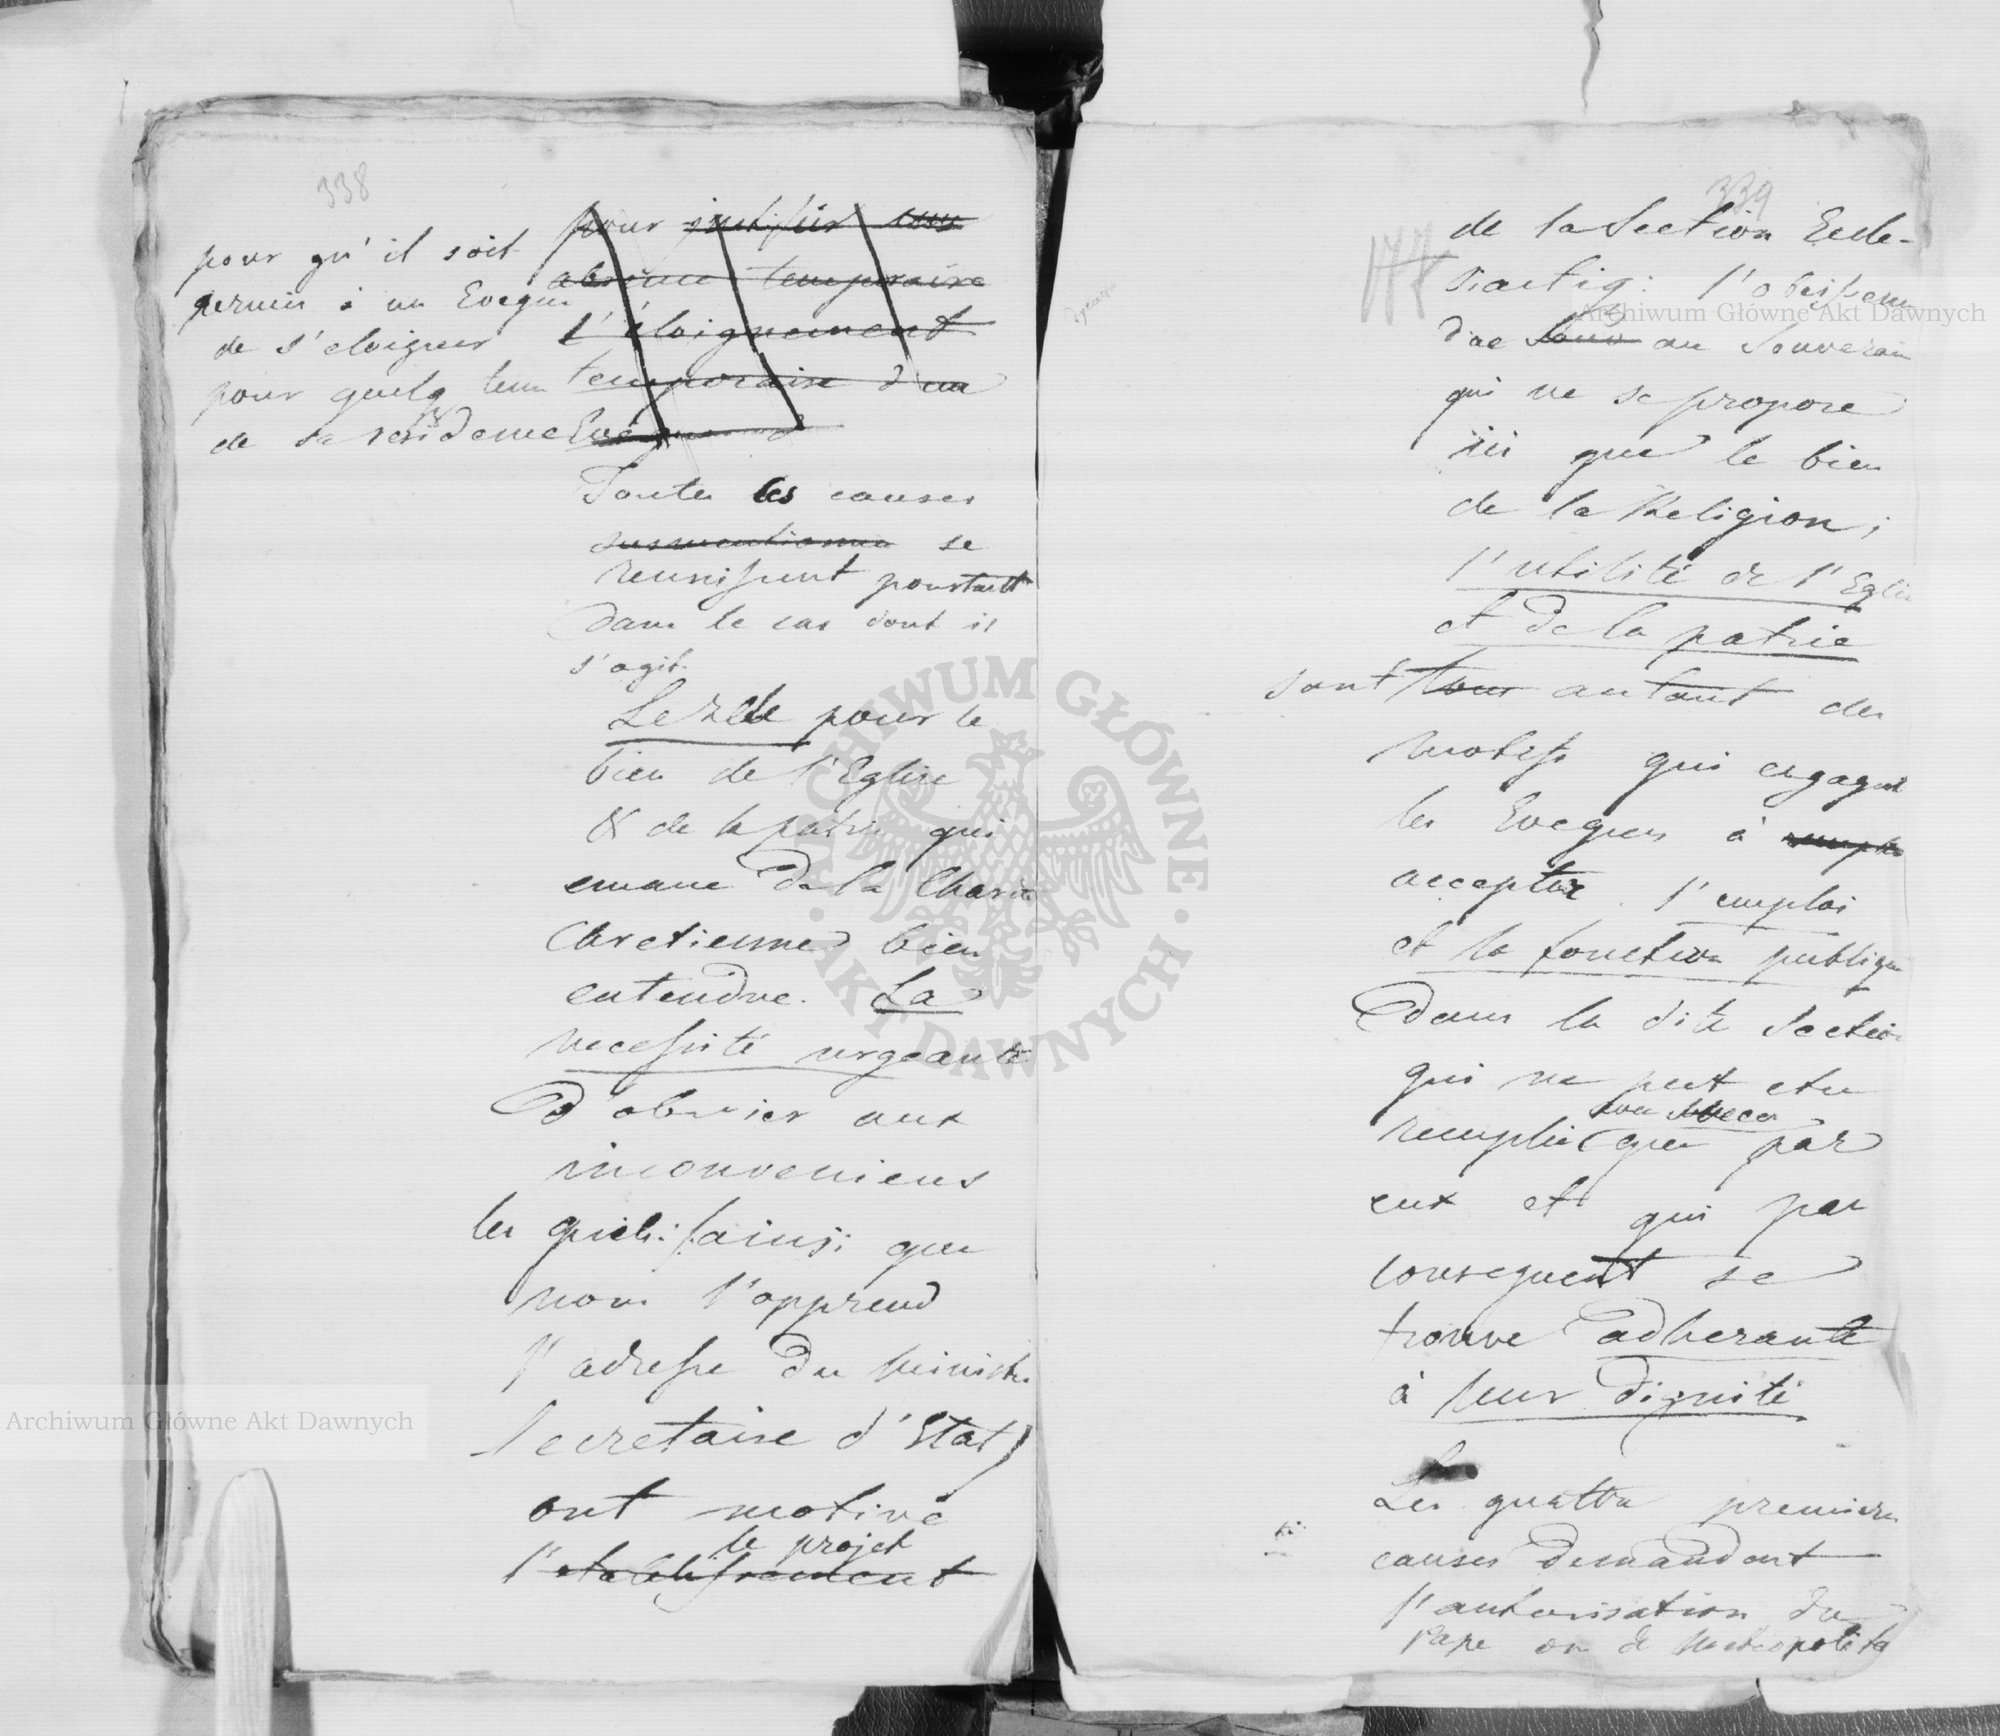 338
pour qu'il soit
permis à un Eveque
de s'eloigner
pour quelq tems
de sa residence
pour justifier une
absence temporaire
l'éloignement
temporaire d'un
Evêque
Toutes les causes
susmentionnes se
reunissent pourtant
dans le cas dont il
s'agit.
Le zele pour le
bien de l'Eglise
& de la patrie qui
emane de la Charité
Chretienne bien
entendue. La
necessité urgeante
d'obvier aux
inconveniens
les quels: (ainsi que
nous l'apprend
l'adresse du Ministre
Secretaire d'Etat)
ont motivé
le projet
l'etablissement
339
177
de la Section Eccle-
siastiq: l'obeissance
due au Souverain
qui ne se propose
ici que le bien
de la Religion;
l'utilité de l'Eglise
et de la patrie
sont tous autant des
motifs qui engagent
les Eveques à
accepter l'emploi
et la fonction publique
dans la dite Section
qui ne peut etre
remplie que par
eux et qui par
consequent se
trouve adherante
à leur dignité
Les quatre premieres
causes demandent
l'autorisation du
Pape ou de Metropolita
Archiwum Główne Akt Dawnych
Archiwum Główne Akt Dawnych
ARCHIWUM GŁÓWNE · AKT DAWNYCH ·